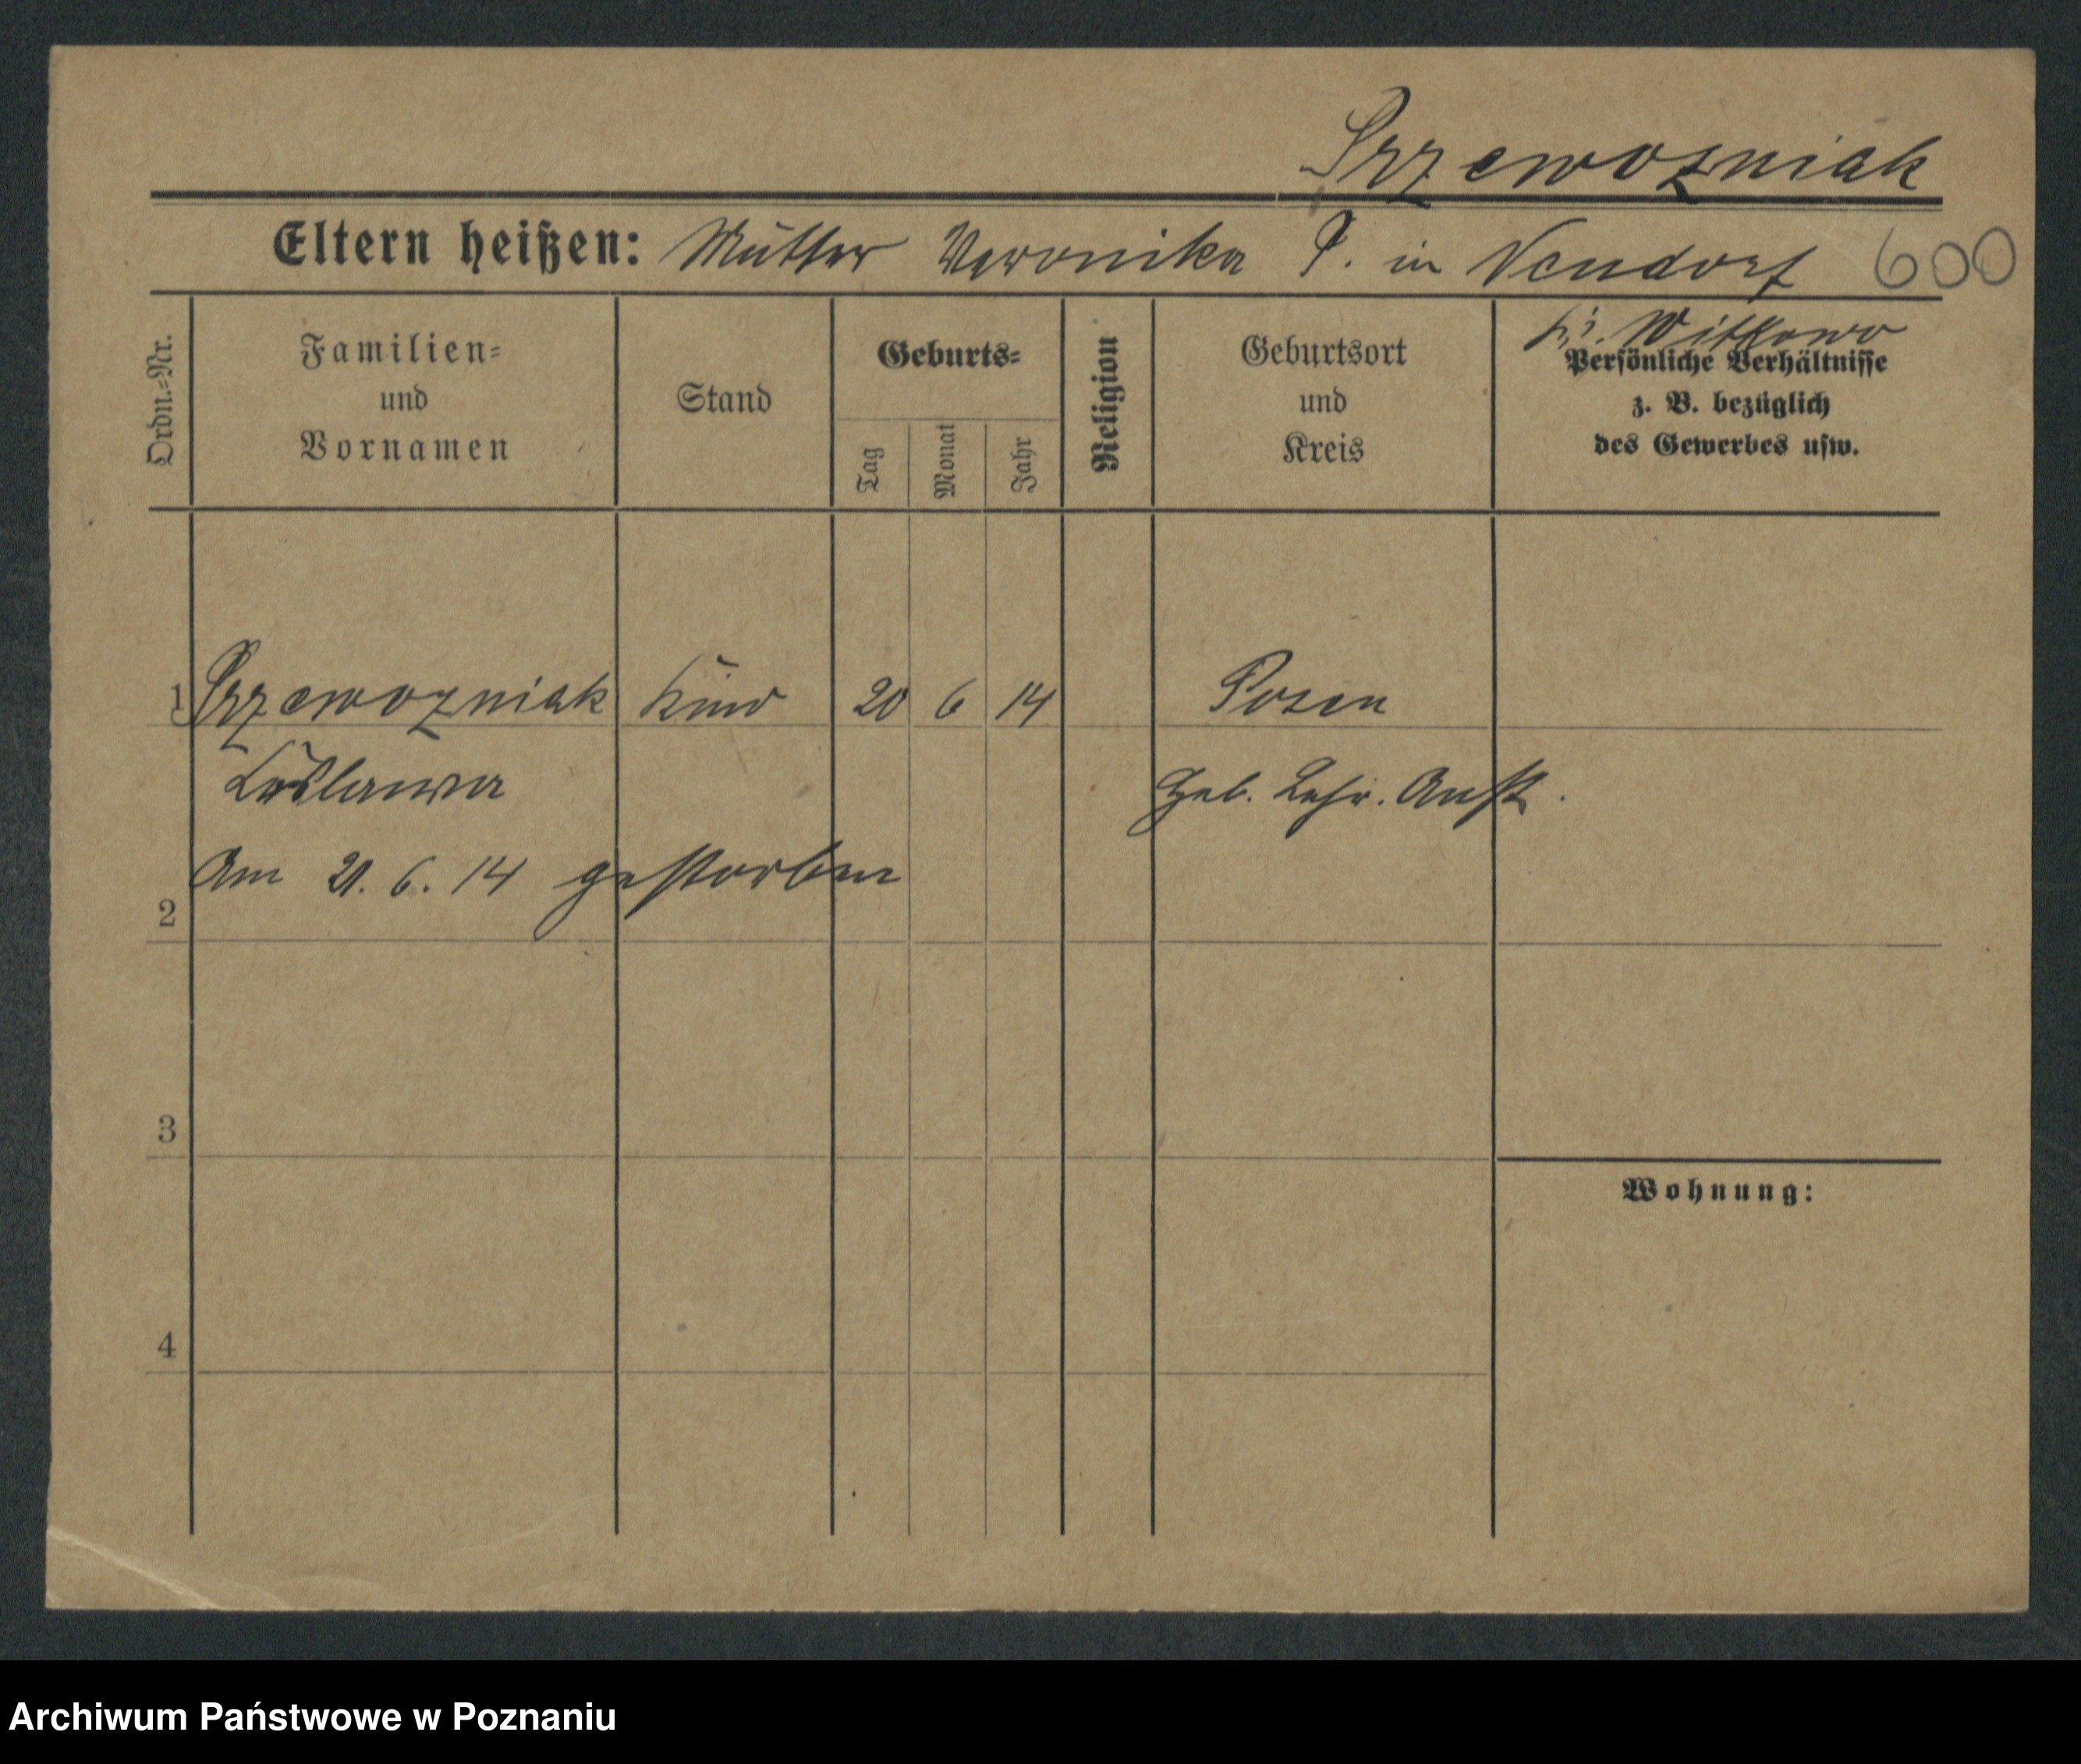 Przewozniak
Eltern heißen: Mutter Veronika P. in Neudorf 600
Kr. Witkowo
Ordn.-Nr.
Familien-
und
Vornamen
Stand
Geburts-
Tag
Monat
Jahr
Religion
Geburtsort
und
Kreis
Persönliche Verhältnisse
z. B. bezüglich
des Gewerbes usw.
1 Przewozniak Kind 20 6 14 Posen
Geb. Lehr. Anst.
Am 21. 6. 14 gestorben
2
3
Wohnung:
4
Archiwum Państwowe w Poznaniu